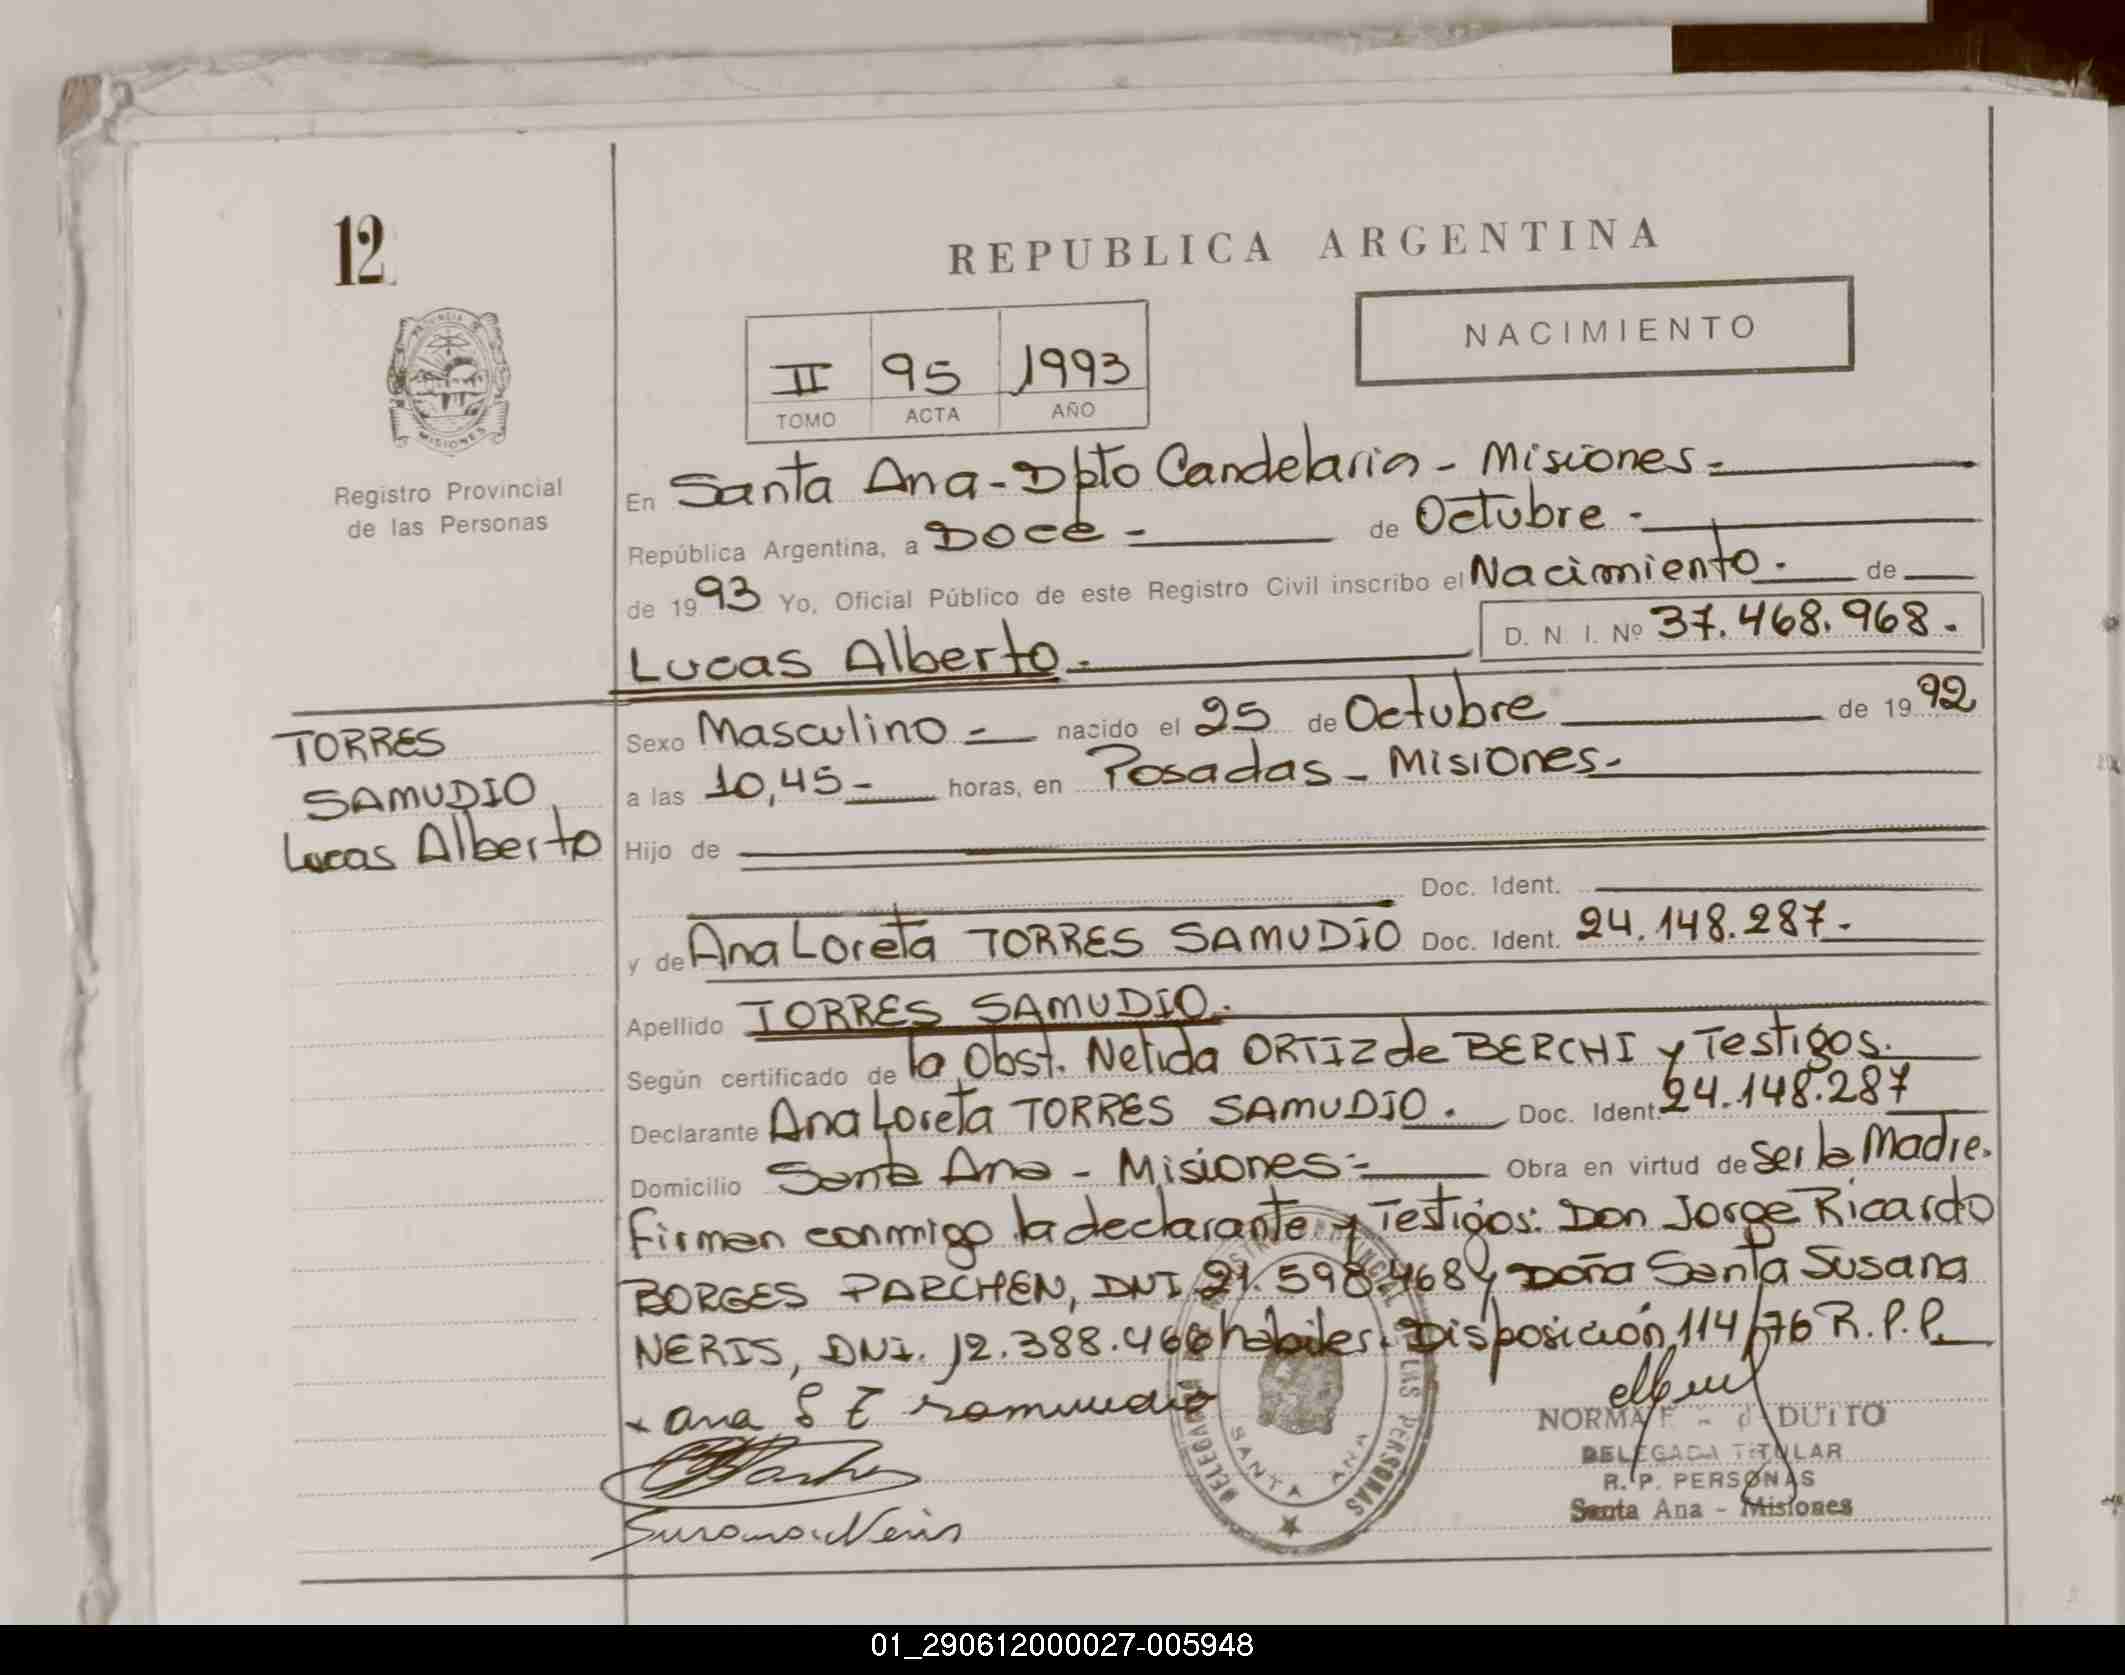 12
REPUBLICA ARGENTINA
NACIMIENTO
II 95 1993
TOMO ACTA AÑO
PROVINCIA DE MISIONES
Registro Provincial
de las Personas
En Santa Ana - Dpto Candelaria - Misiones =
República Argentina, a Doce - de Octubre -
de 1993 Yo, Oficial Público de este Registro Civil inscribo el Nacimiento. de
Lucas Alberto. D. N. I. Nº 37.468.968.
TORRES
SAMUDIO
Lucas Alberto
Sexo Masculino = nacido el 25 de Octubre de 1992
a las 10,45 - horas, en Posadas - Misiones.
Hijo de
Doc. Ident.
y de Ana Loreta TORRES SAMUDIO Doc. Ident. 24.148.287.
Apellido TORRES SAMUDIO.
Según certificado de la Obst. Nelida ORTIZ de BERCHI y Testigos.
Declarante Ana Loreta TORRES SAMUDIO. Doc. Ident. 24.148.287
Domicilio Santa Ana - Misiones = Obra en virtud de Ser la Madre.
Firman conmigo la declarante y Testigos: Don Jorge Ricardo
BORGES PARCHEN, DNI 21.598.468 y Doña Santa Susana
NERIS, DNI. 12.388.466 habiles. Disposición 114/76 R.P.P.
x ana L T samudio
Susana Neris
SANTA ANA
NORMA DUTTO
DELEGADA TITULAR
R. P. PERSONAS
Santa Ana - Misiones
01_290612000027-005948